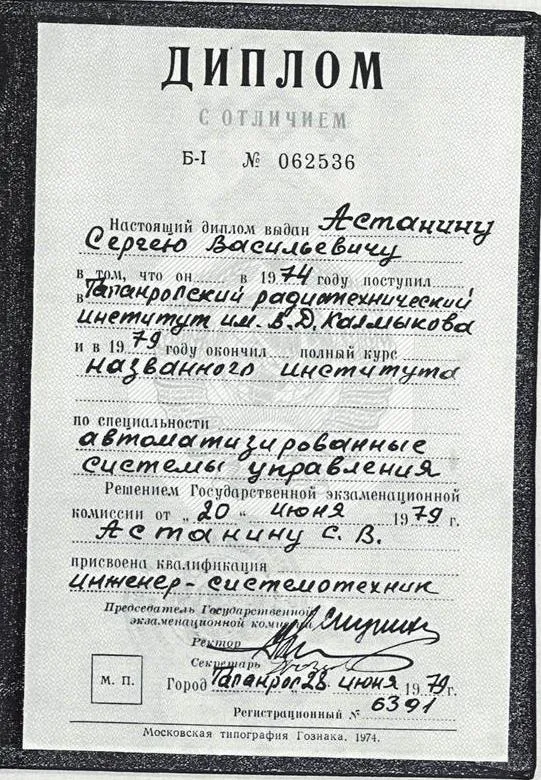 ДИПЛОМ
С ОТЛИЧИЕМ
Б-I № 062536
Настоящий диплом выдан Астанину
Сергею Васильевичу
в том, что он в 1974 году поступил
в Таганрогский радиотехнический
институт им. В.Д. Калмыкова
и в 1979 году окончил полный курс
названного института
по специальности
автоматизированные
системы управления
Решением Государственной экзаменационной
комиссии от „20“ июня 1979 г.
Астанину С. В.
присвоена квалификация
инженер-системотехник
Председатель Государственной
экзаменационной комиссии
Ректор
Секретарь
М. П.
Город Таганрог 28 июня 1979 г.
Регистрационный № 6391
Московская типография Гознака. 1974.